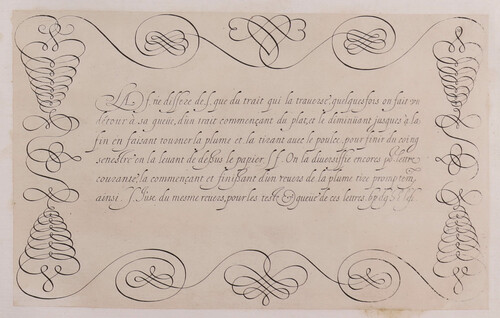 LA f, ne differe de ſ, que du trait qui la traverse, quelques fois on fait un
détour à sa queüe, d'un trait commençant du plat, et le diminüant jusques à la
fin en faisant tourner la plume et la tirant avec le poulce, pour finir du coing
senestre en la levant de dessus le papier. ſ ſ. On la diversifie encores pour lettre
courante, la commençant et finissant d'un revers de la plume tiré promptem
ainsi. Use du mesme revers, pour les teste et queüe de ces lettres. b p d q